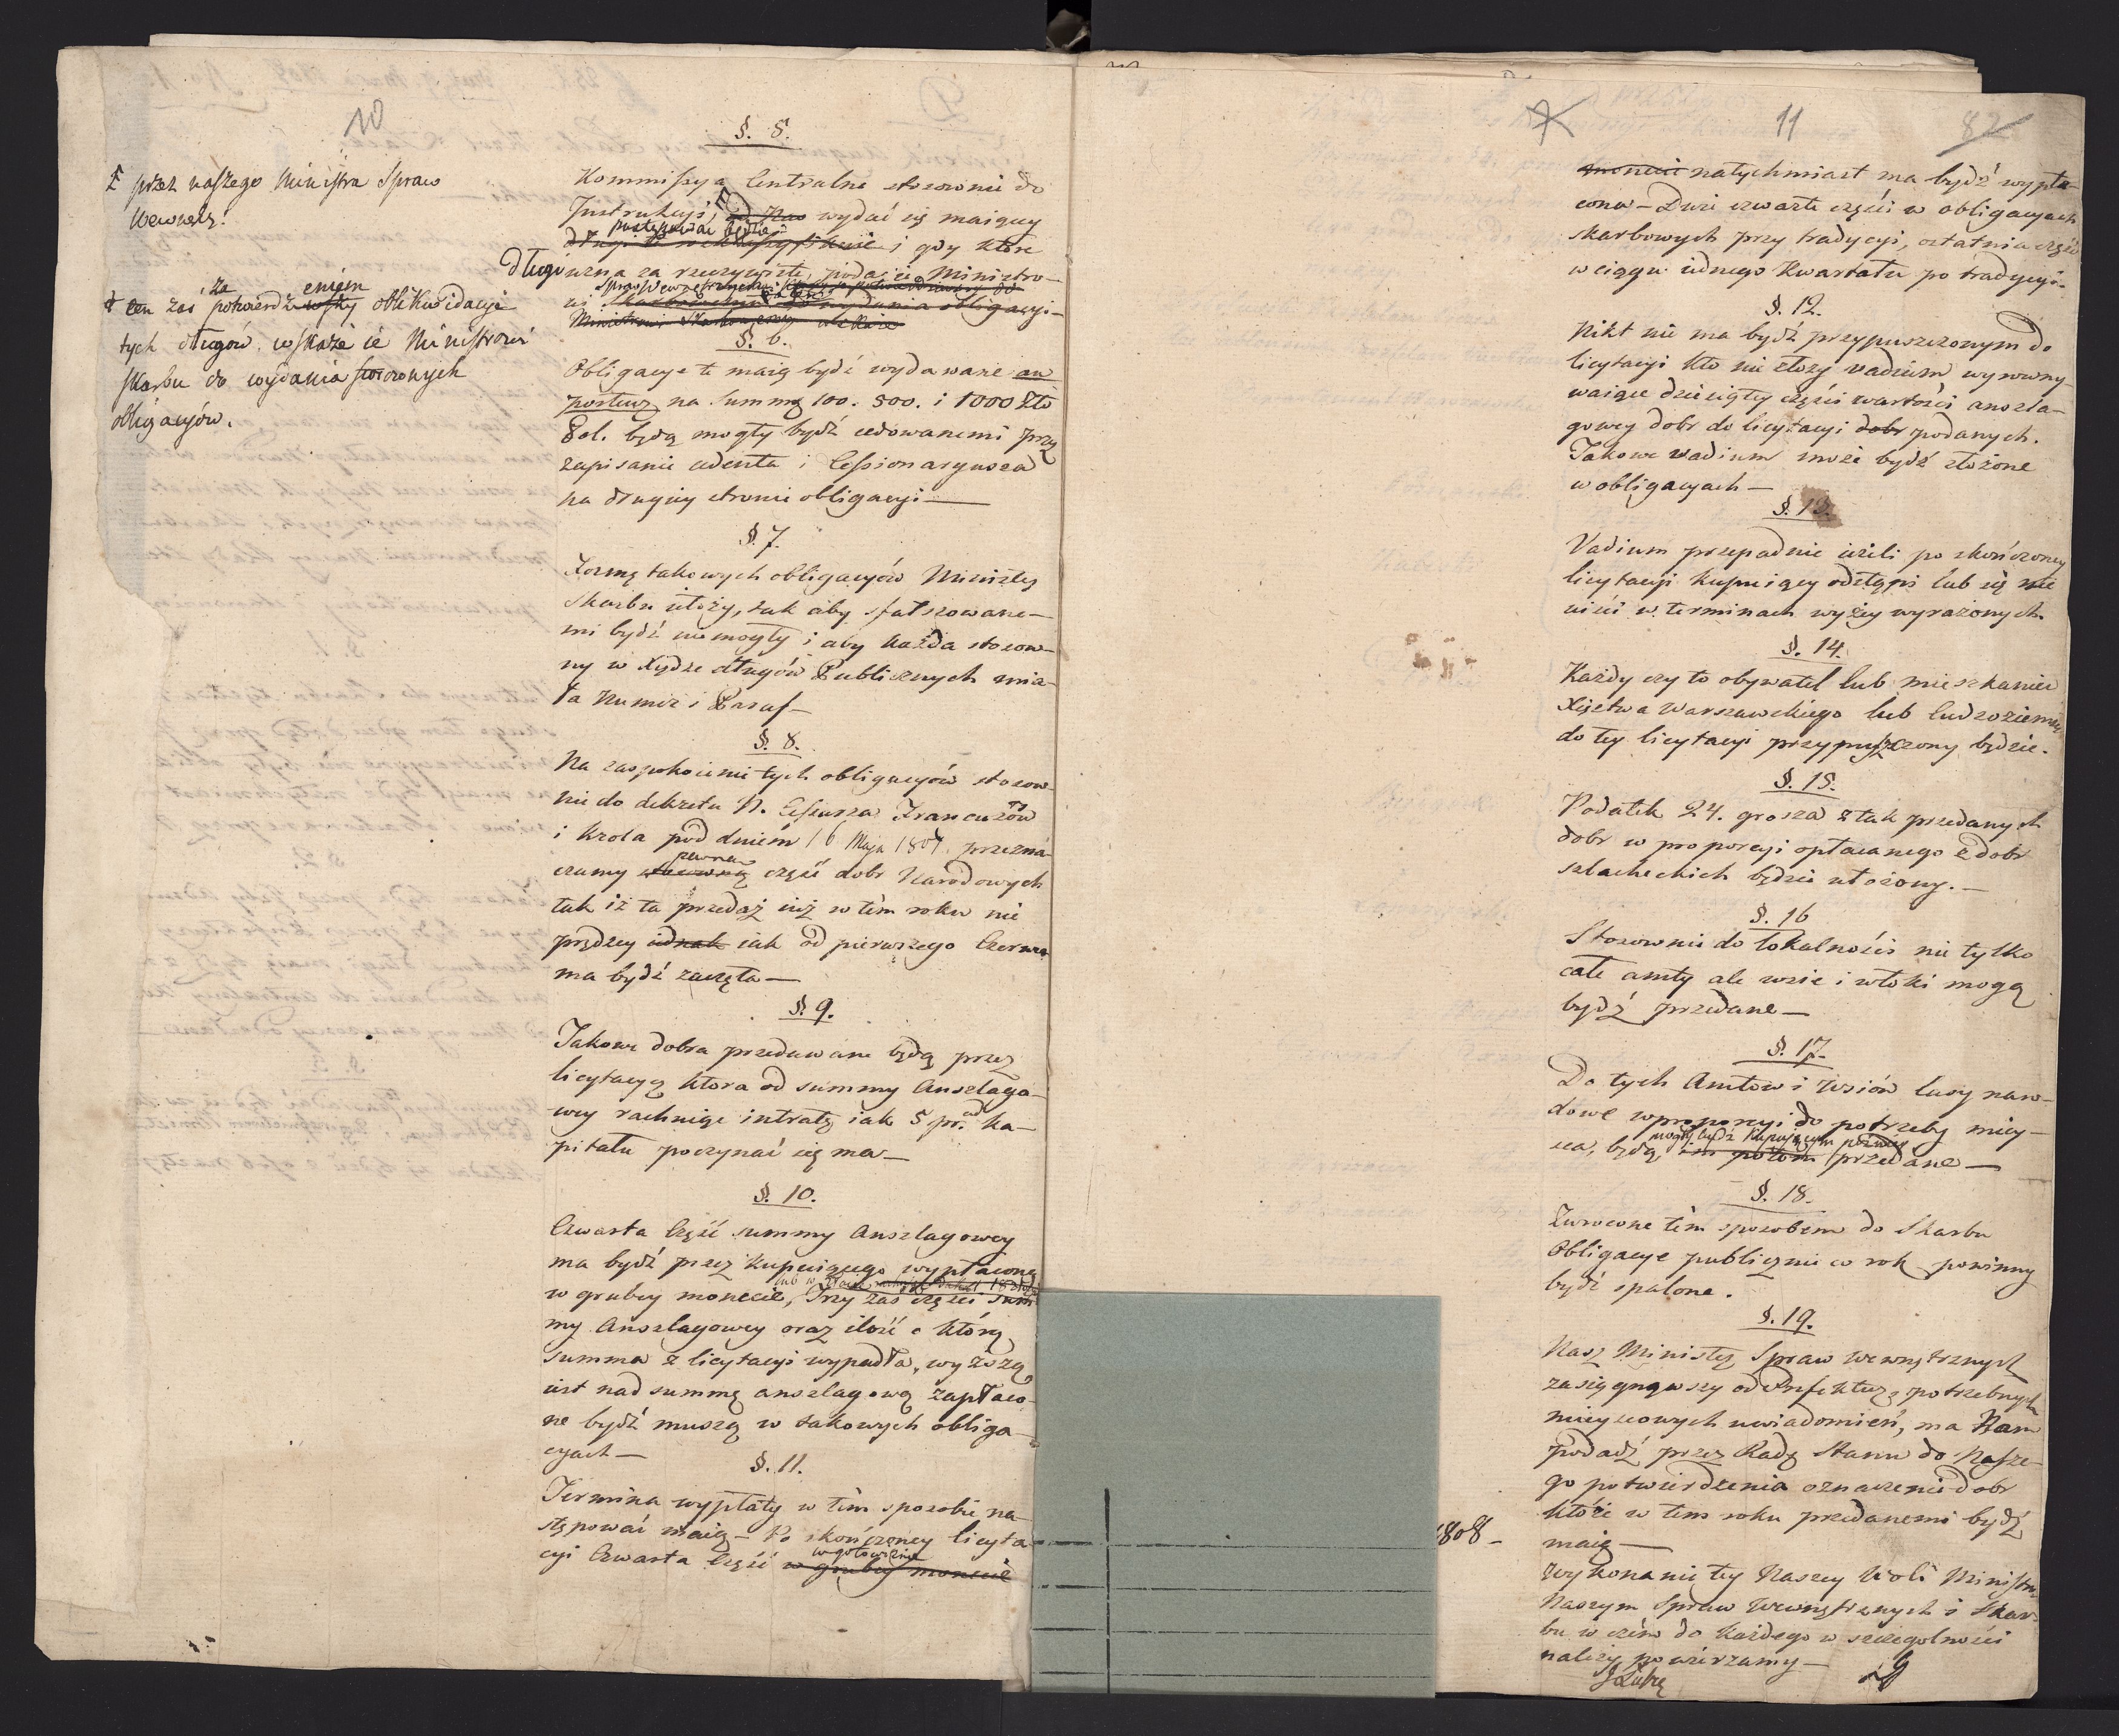 10
§. 5.
Kommissya Centralna stosownie do
Instrukcyi, wydać się maiącey
postępować będzie
i gdy które
długi uzna za rzeczywiste, poda ie Ministro-
wi Spraw Wewnętrznych
Skarbowemu do wydania obligacyi-
Ministrowi Skarbowemu
Ŧ przez naszego Ministra Spraw
Wewnętz:
ten zaś za potwierdzeniem oblikwidacyi
tych długów wskaże ie Ministrowi
Skarbu do wydania stosownych
obligacyów.
§. 6.
Obligacye te maią bydź wydawane au
porteur, na Summę 100. 500. i 1000 Zło
Pol. będą mogły bydź cedowanemi przy
zapisanie cedenta i Cessionaryusza
na drugiey stronie obligacyi —
§. 7.
Formę takowych obligacyów Ministez
Skarbu ułoży, tak aby sfałszowane-
mi bydź nie mogły i aby każda stosow-
ny w Xiędze długów Publicznych mia-
ła Numer i Paraf —
§. 8.
Na zaspokoienie tych obligacyów stosow-
nie do dekretu N. Cesarza Francuzów
i Krola pod dniem 16 Maja 1807. przezna-
czamy pewną część dobr Narodowych
tak iż ta przedaż iuż w tém roku nie
prędzey iednak iak od pierwszego Czerwca
ma bydź zaczęta —
§. 9.
Takowe dobra przedawane będą przez
licytacyą która od summy Anszlago-
wey rachuiąc intratę iak 5 pr. od Ka-
pitału poczynać się ma —
§. 10.
Czwarta Część summy Anszlagowey
ma bydź przez kupuiącego wypłacona
w grubey monecie, Trzy zaś części sum
my Anszlagowey oraz ilość o którą
summa z licytacyi wypadła, wyższą
iest nad summę anszlagową zapłaco-
ne bydź muszą w takowych obliga-
cyach —
§. 11.
Termina wypłaty w tém sposobie na-
stępować maią — Po skończoney licyta-
cyi Czwarta Część w gotowiźnie w grubey monecie
7 11 82
monecie natychmiast ma bydź wypła-
cona — Dwie czwarte części w obligacyach
skarbowych przy tradycyi, ostatnia część
w ciągu iednego Kwartału po tradycyi.
§. 12.
Nikt nie ma bydź przypuszczonym do
licytacyi kto nie złoży vadium wyrowny-
waiące dziesiątey części wartości anszla-
gowey dobr do licytacyi dobr podanych.
Takowe vadium może bydź złożone
w obligacyach —
§. 13.
Vadium przepadnie ieżeli po skończoney
licytacyi kupuiący odstąpi lub się nie
uiści w terminach wyżey wyrażonych.
§. 14.
Każdy czy to obywatel lub mieszkaniec
Xięstwa Warszawskiego lub Cudzoziemiec
do tey licytacyi przypuszczony będzie.
§. 15.
Podatek 24. grosza z tak przedanych
dobr w proporcyi opłacanego z dobr
szlacheckich będzie ułożony. —
§. 16
Stosownie do lokalności nie tylko
całe amty ale wsie i włoki mogą
bydź przedane —
§. 17.
Do tych Amtow i wsiów lasy naro-
dowe w proporcyi do potrzeby miey-
sca, będą mogły bydź kupuiącym później
im potem przedane —
§. 18.
Zwrocone tém sposobem do Skarbu
Obligacye publicznie co rok powinny
bydź spalone.
§. 19.
Nasz Ministez Spraw Wewnętrznych
zasiągnąwszy od Prefektury potrzebnych
mieyscowych uwiadomień, ma Nam
podadź przez Radę Stanu do Nasze-
go potwierdzenia oznaczenie dobr
które w tem roku przedanemi bydź
1808 - maią —
Wykonanie tey Naszey Woli Ministrom
Naszym Spraw Wewnętrznych i Skar-
bu w czém do każdego w szczegolności
należy powierzamy —